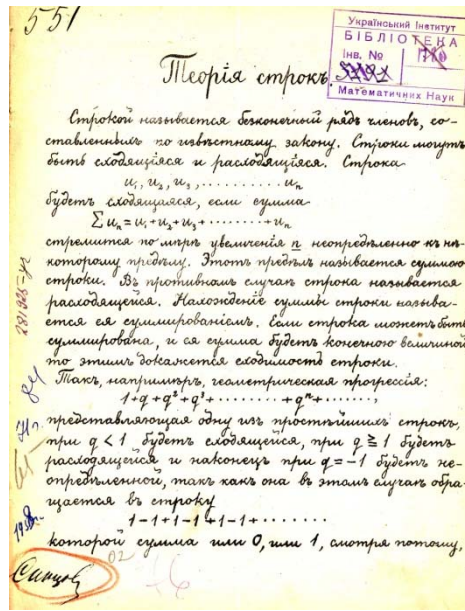 551
Український Інститут
БІБЛІОТЕКА
Інв. №
Математичних Наук
Теорія строкъ
Строкой называется безконечный рядъ членовъ, со-
ставленныхъ по извѣстному закону. Строки могутъ
быть сходящіяся и расходящіяся. Строка
u₁, u₂, u₃, . . . . . . . . . . uₙ
будетъ сходящаяся, если сумма
∑uₙ = u₁+u₂+u₃+ . . . . . . . . . +uₙ
стремится по мѣрѣ увеличенія n неопредѣленно къ нѣ-
которому предѣлу. Этотъ предѣлъ называется суммою
строки. Въ противномъ случаѣ строка называется
расходящейся. Нахожденіе суммы строки называ-
ется ея суммированіемъ. Если строка можетъ быть
суммирована, и ея сумма будетъ конечною величиной
то этимъ докажется сходимость строки.
Такъ, напримѣръ, геометрическая прогрессія:
1+q+q²+q³+ . . . . . . . . +qⁿ+ . . . . . . ,
представляющая одну изъ простѣйшихъ строкъ,
при q < 1 будетъ сходящейся, при q ≧ 1 будетъ
расходящейся и наконецъ при q = −1 будетъ не-
опредѣленной, такъ какъ она въ этомъ случаѣ обра-
щается въ строку
1−1+1−1+1−1+ . . . . . . .
которой сумма или 0, или 1, смотря потому,
Синцов
02